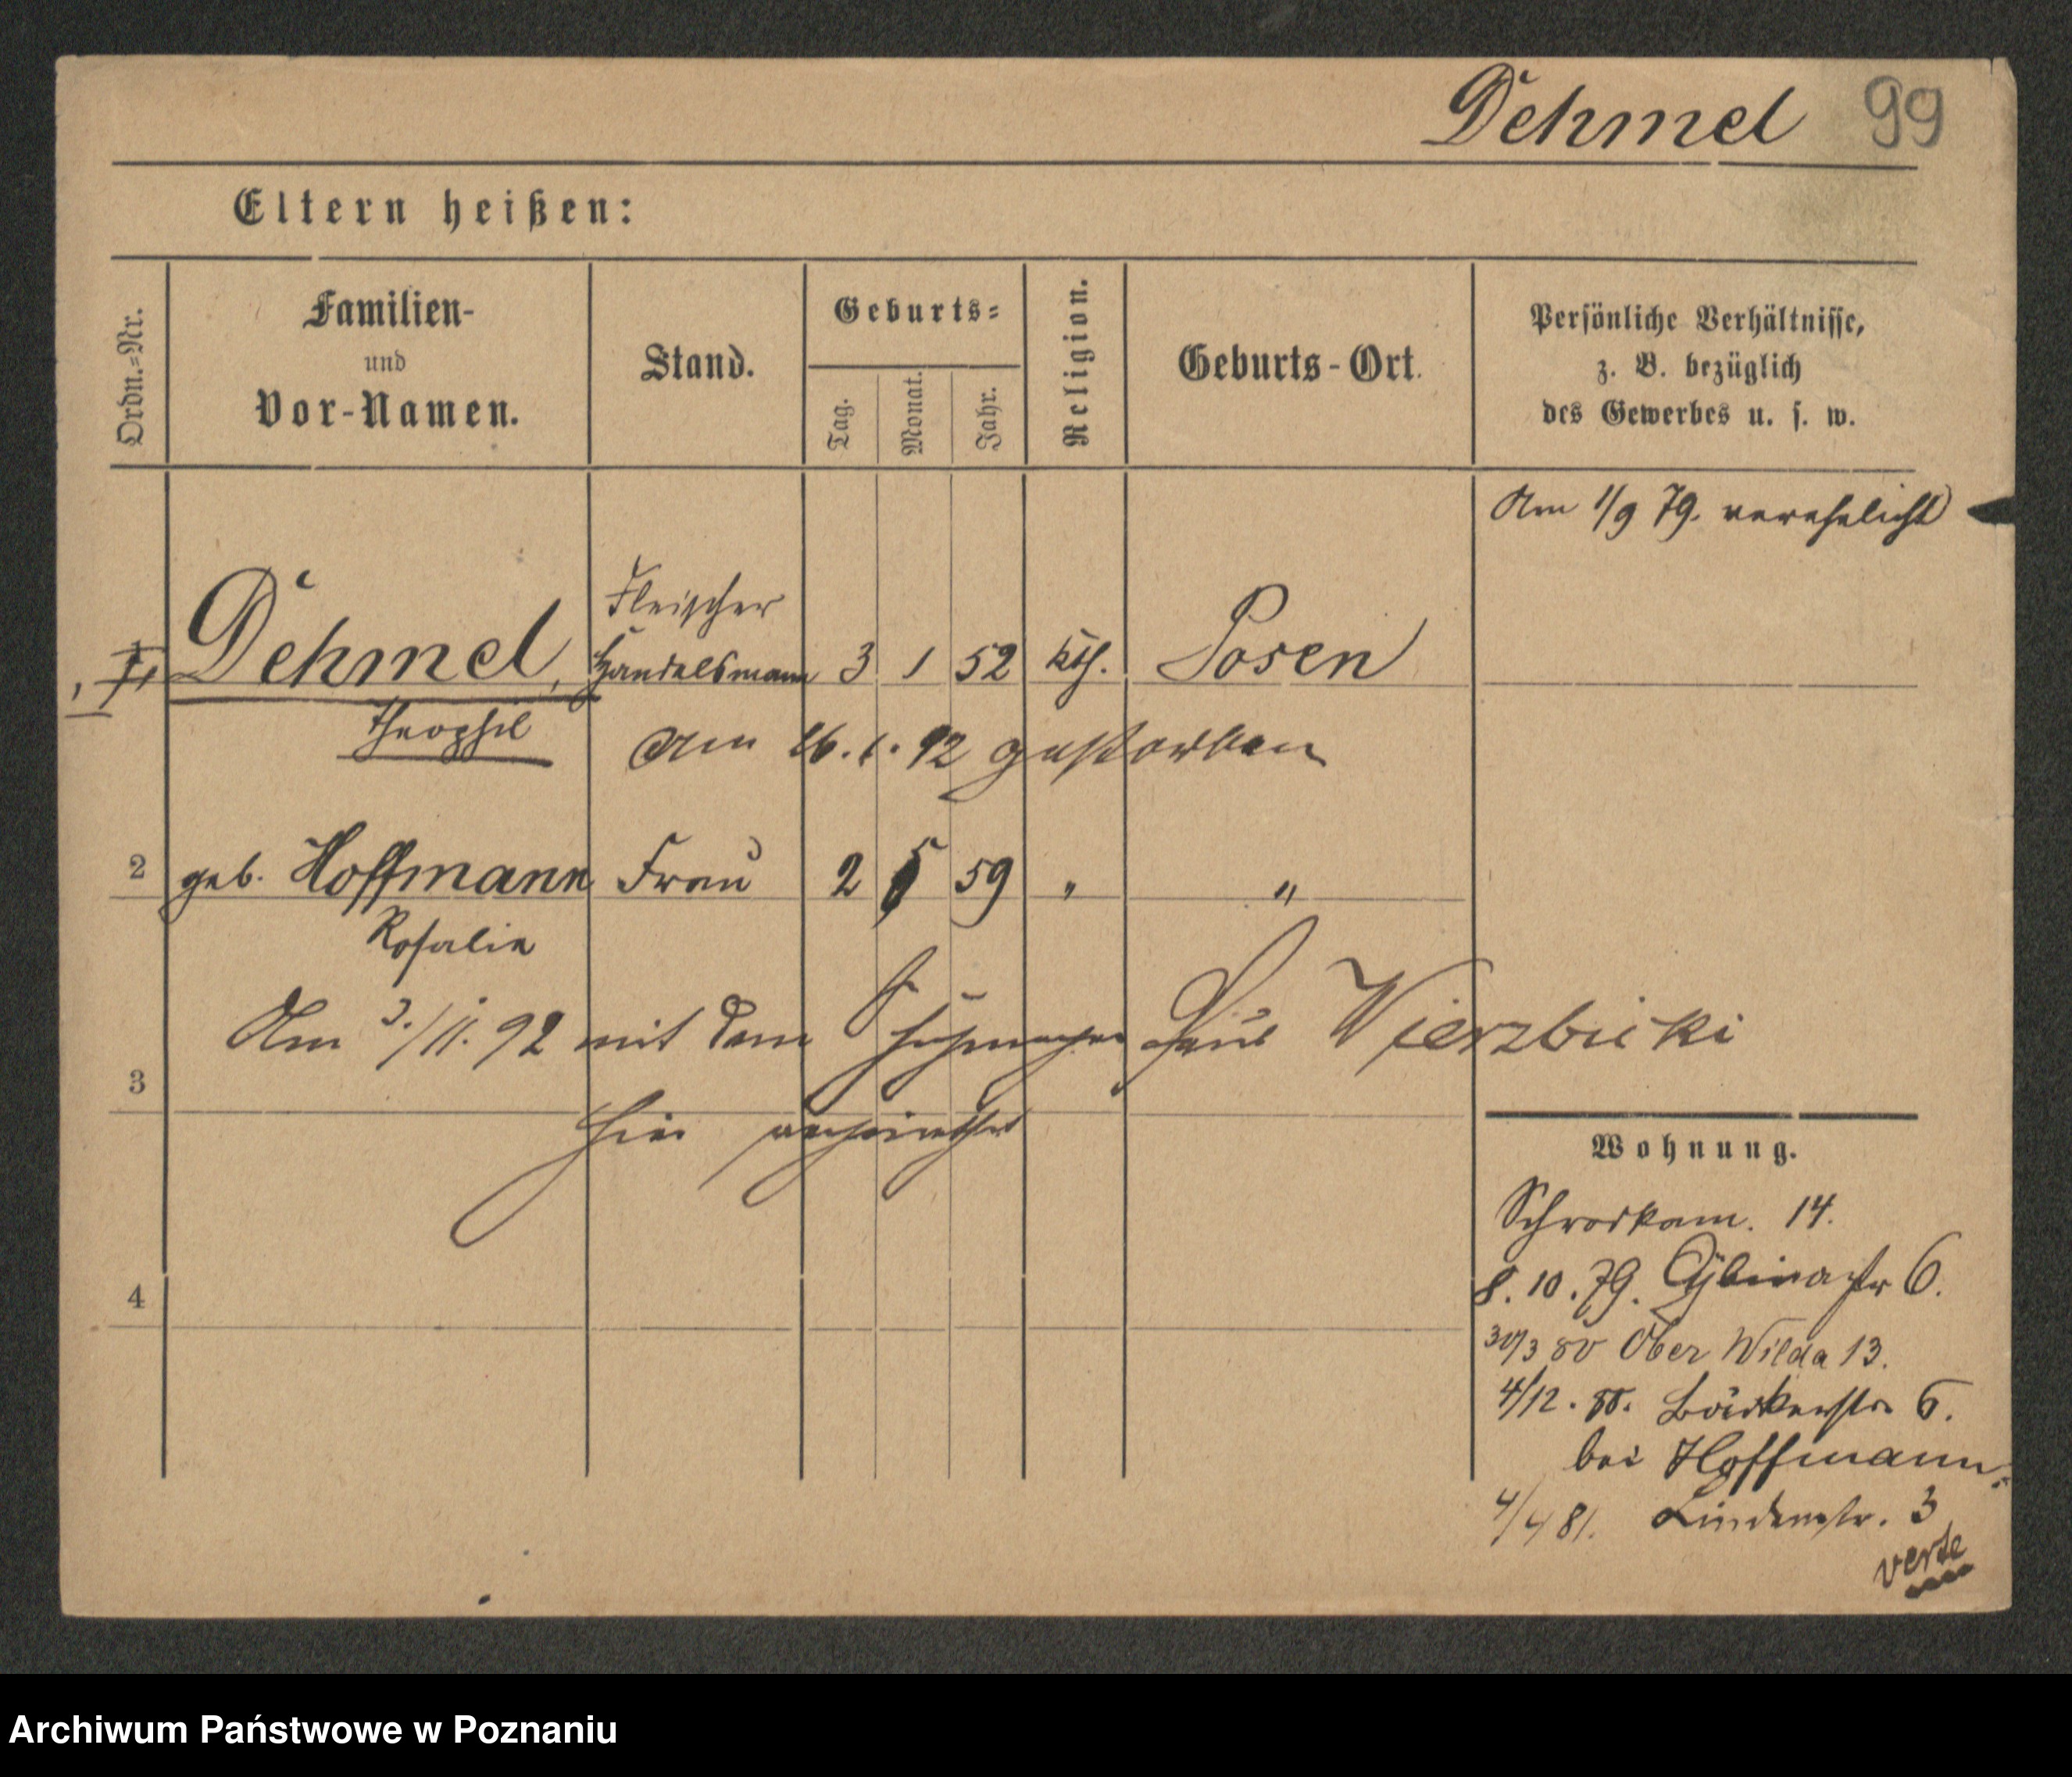 Dehmel 99
Eltern heißen:
Ordn.=Nr.
Familien-
und
Vor-Namen.
Stand.
Geburts=
Tag.
Monat.
Jahr.
Religion.
Geburts-Ort.
Persönliche Verhältnisse,
z. B. bezüglich
des Gewerbes u. s. w.
Am 1/9 79. verehelicht
Fleischer
Dehmel, Handelsmann 3 1 52 kth. Posen
Theophil
Am 26.1.92 gestorben
2 geb. Hoffmann Frau 2 5 59 " "
Rosalie
Am 3./11.92 mit dem Schuhmacher Wierzbicki
3
hier verheirathet
4
Wohnung.
Schrodkam. 14.
8.10.79. Cybinastr 6.
30/3 80 Ober Wilda 13.
4/12. 80. Bäckerstr. 6.
bei Hoffmann.
4/4 81. Lindenstr. 3
verte
Archiwum Państwowe w Poznaniu